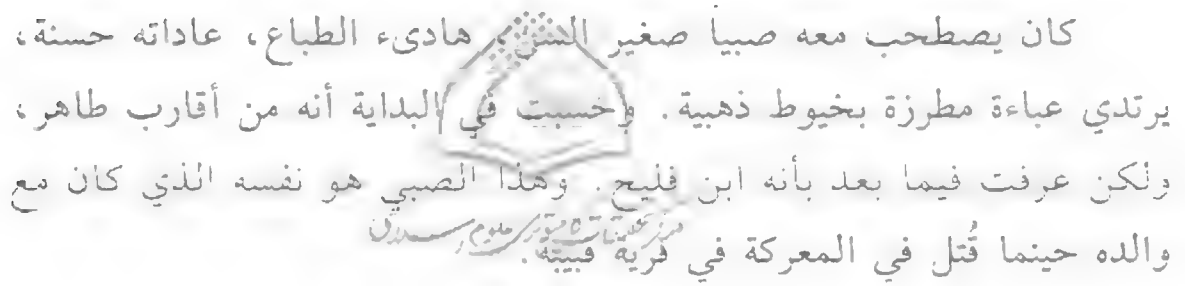 كان يصطحب معه صبيا صغير السن، هادىء الطباع، عاداته حسنة،
يرتدي عباءة مطرزة بخيوط ذهبية. وحسبت في البداية أنه من أقارب طاهر،
ولكن عرفت فيما بعد بأنه ابن فليح. وهذا الصبي هو نفسه الذي كان مع
والده حينما قُتل في المعركة في قرية قبيبة.